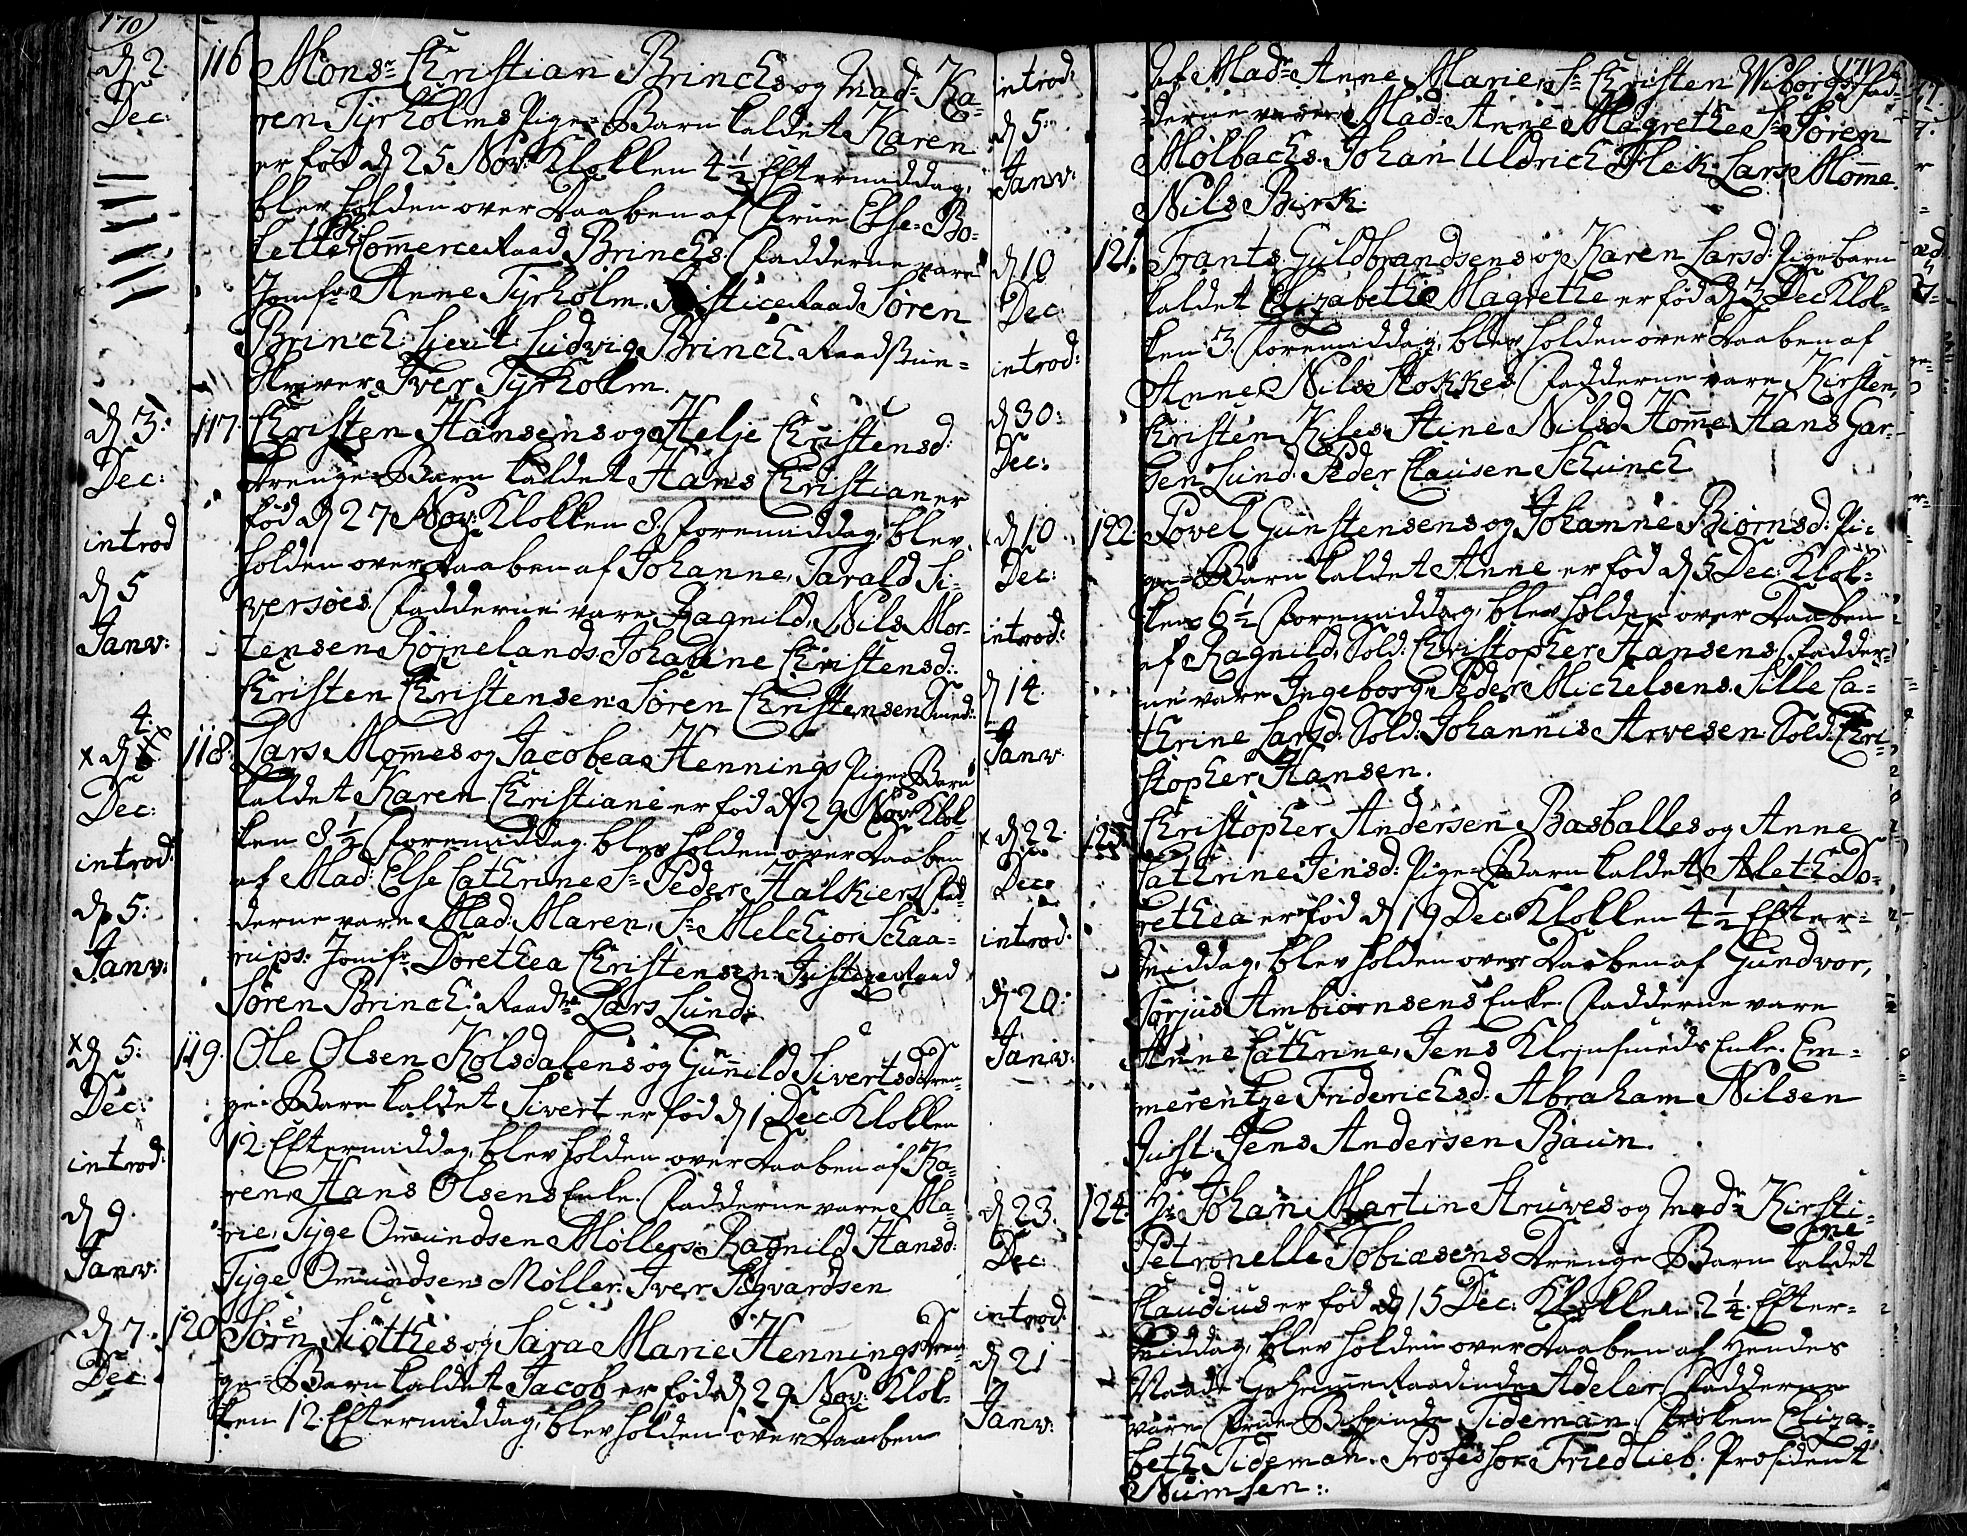 170
d 2 Dec: 116 Mons.r Christian Brinchs og Mad.e Ka-
ren Tyrholms Pige-Barn kaldet Karen
er fød d 25 Nov: Klokken 4 1/2 Eftermiddag,
blev holden over Daaben af Frue Else Bo-
lette CommerceRaad Brinchs. Fadderne vare
Jomfr. Anne Tyrholm. JusticeRaad Søren
Brinch. Ludvig Brinch. Raadstue-
skriver Iver Tyrholm.
d 3: Dec: 117. Christen Hansens og Helje Christensd:
Drenge-Barn kaldet Hans Christian er
fød d 27 Nov: Klokken 8 Foremiddag, blev
introd d 5 Janv: holden over Daaben af Johanne, Tarald Si-
versøes. Fadderne vare Ragnild, Nils Mor-
tensen Røjnelands. Johanne Christensd:
Christen Christensen. Søren Christensen Smed:
x d 4 Dec: 118. Lars Mommes og Jacobea Hennings Pige-Barn
kaldet Karen Christiane er fød d 29 Nov: Klok-
ken 8 1/2 Foremiddag. blev holden over Daaben
introd: d 5: Janv: af Mad: Else Cathrine Sr Peder Halkiers. Fad-
derne vare Mad: Maren, Sr Melchior Schaa-
rups. Jomfr. Dorethea Christensen. JusticeRaad
Søren Brinch. Raadm Lars Lund:
x d 5: Dec: 119. Ole Olsen Kolsdalens og Gunnild Sivertsd: Dren-
ge-Barn kaldet Sivert er fød d 1 Dec Klokken
12. Eftermiddag, blev holden over Daaben af Ka-
introd: d 9. Janv: ren, Hans Olsens Enke. Fadderne vare Ma-
rie, Tyge Omundsen Møllers. Ragnild Hansd:
Tyge Omundsen Møller. Iver Sigvardsen
x d 7. Dec: 120. Søren Slotthes og Sara Marie Hennings Dren-
ge-Barn kaldet Jacob er fød d 29 Nov: Klok-
ken 12. Eftermiddag, blev holden over Daaben
171
introd: d 5: Janv: af Mad.e Anne Marie, Sr Christen Wiborgs. Fad-
derne vare Mad: Anne Magrethe Sr Søren
Mølbachs. Johan Uldrich Fleik. Lars Momme.
Nils Birk.
d 10 Dec: 121. Frants Guldbrandsens og Karen Larsd: Pigebarn
kaldet Elizabethe Magrethe er fød d 3 Dec Klok-
introd: d 30: Dec: ken 3. Foremiddag, blev holden over Daaben af
Anne, Nils Stokkes. Fadderne vare Kirsten,
Christen Kiles. Stine Nilsd Homme. Hans Gar-
sen Lund. Peder Clausen Schunch
x d 10 Dec: 122. Povel Gunstensens og Johanne Biørnsd: Pi-
ge-Barn kaldet Anne er fød d 5 Dec: Klok-
introd: d 14. Janv: ken 6 1/2 Foremiddag, blev holden over Daaben
af Ragnild, Sold: Christopher Hansens. Fadder-
ne vare Ingeborg, Peder Michelsens. Sille Ca-
thrine Larsd: Sold: Johannis Arvesen. Sold: Chri-
stopher Hansen.
x d 22. Dec: 123. Christopher Andersen Basballes og Anne
Cathrine Jensd: Pige-Barn kaldet Aleth Do-
rethea er fød d 19 Dec Klokken 4 1/2 Efter-
introd: d 20: Janv: middag, blev holden over Daaben af Gundvor,
Torjus Ambiørnsens Enke. Fadderne vare
Anne Cathrine, Jens Klejnsmeds Enke. Em-
merentze Friderichsd: Abraham Nilsen
Just. Jens Andersen Baun.
d 23. Dec: 124. Hr Johan Martin Struves og Mad.e Kirsti-
ne Petronelle Tobiæsens Drenge-Barn kaldet
Claudius er fød d 15 Dec: Klokken 2 1/4. Efter-
introd: d 21 Janv: middag, blev holden over Daaben af Hendes
Naade GeheimeRaadinde Adeler. Fadderne
vare Frue Bispinde Tideman. Frøken Eliza-
beth Tideman. Professor Friedlieb. Præsident
Numsen:.